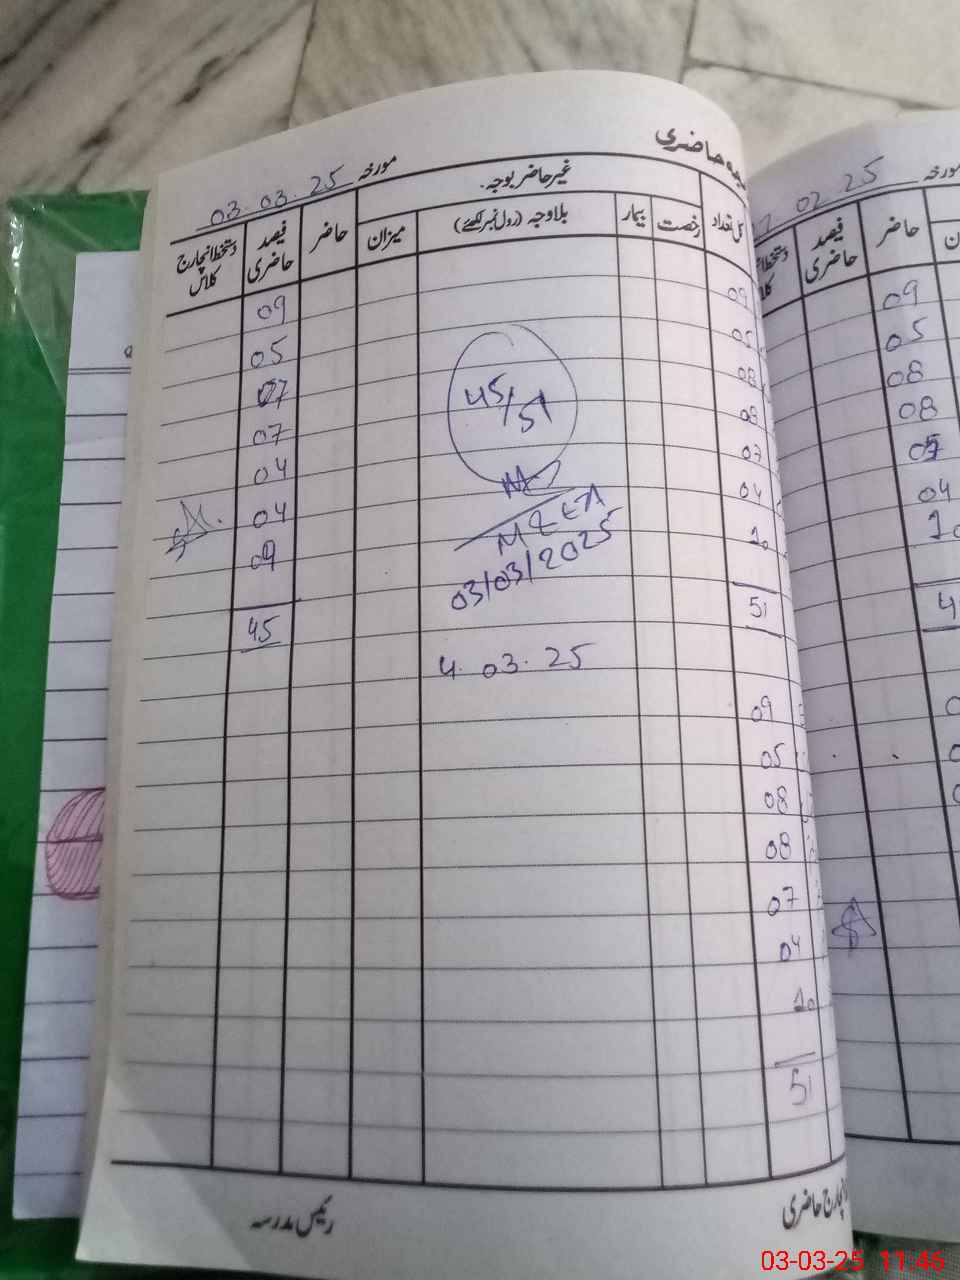 حاضری
مورخہ 03.03.25
غیر حاضر بوجہ
کل تعداد رخصت بیمار بلاوجہ (رول نمبر لکھئے) میزان حاضر فیصد حاضری دستخط انچارج کلاس
09 09
05 05
08 07
08 07
07 04
04 04
10 09
51 45
45/51
MEEA
03/03/2025
4.03.25
09
05
08
08
07
04
10
51
انچارج حاضری رئیس مدرسہ
مورخہ 02 25
حاضر فیصد حاضری
09
05
08
08
04
10
03-03-25 11:46